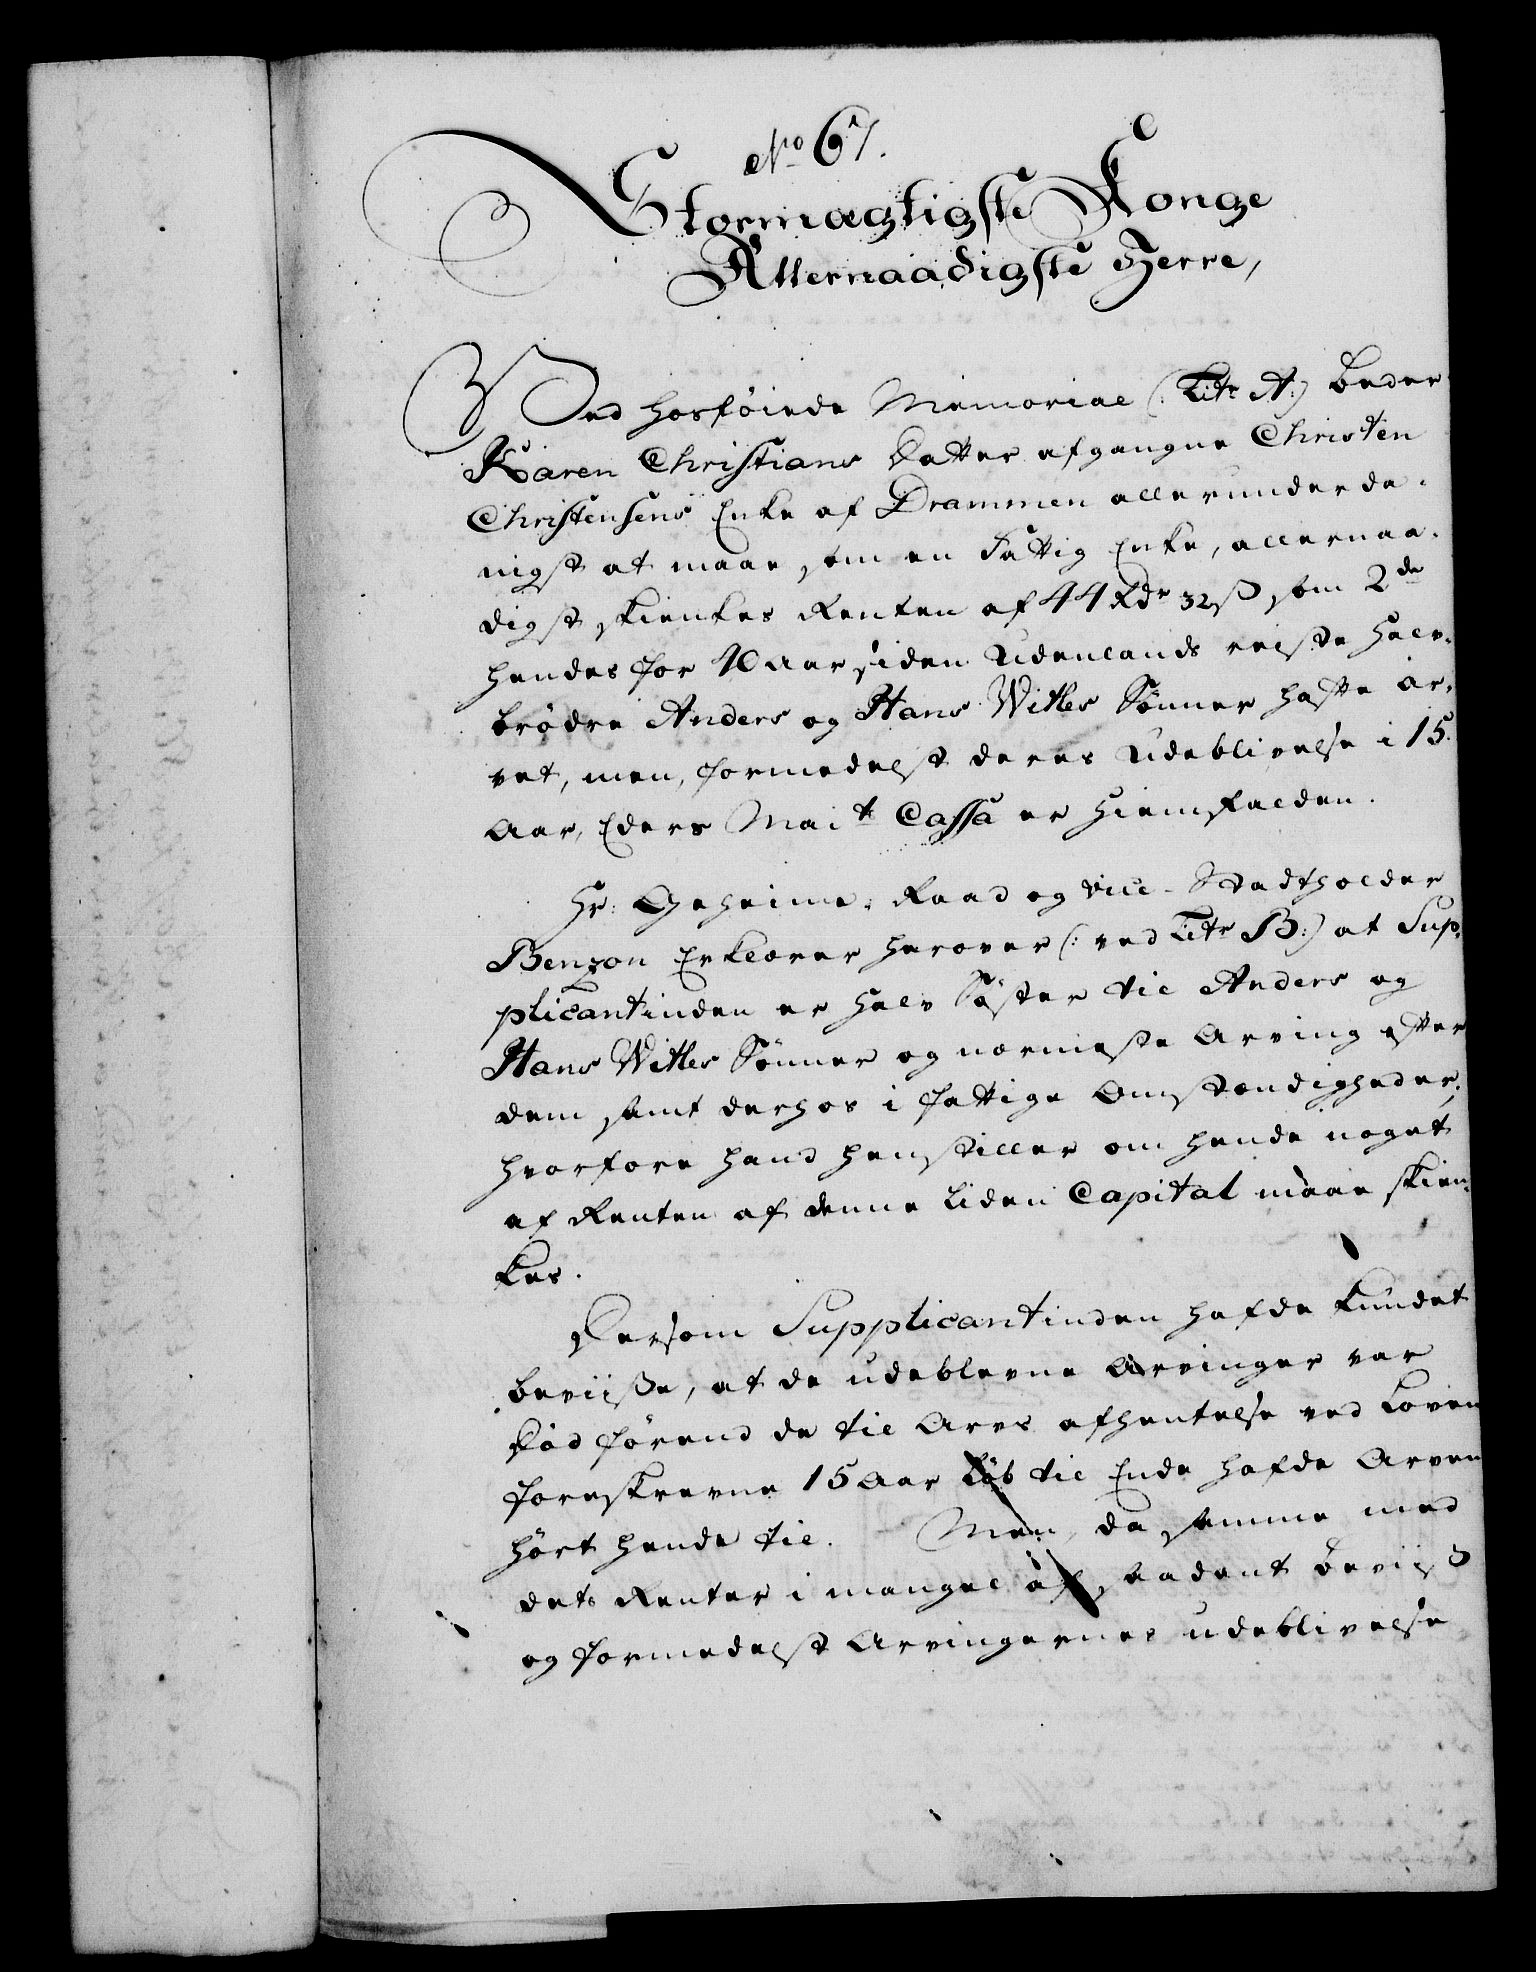 No 67.
Stormægtigste Konge
Allernaadigste Herre,
Ved hosføiede Memorial (: Litr A:) beder
Karen Christians Datter afgangne Christen
Christensens Enke af Drammen allerunderda-
nigst at maae som en Fattig Enke, allernaa-
digst skienkes Renten af 44 Rdr 32 ß som 2de
hendes for 40 Aar siden Udenlands reiste Halv-
brødre Anders og Hans Witles Sønner hafte ar-
vet, men, formedelst deres Udeblivelse i 15.
Aar, Eders Maits Cassa er hiemfalden.
Hr: Geheime-Raad og Vice-Stadtholder
Benzon Erklærer herover (: ved Litr B:) at Sup-
plicantinden er Halv Søster til Anders og
Hans Witles Sønner og nærmeste Arving efter
dem samt derhos i fattige Omstændigheder,
hvorfore hand henstiller om hende noget
af Renten af denne liden Capital maae skien-
kes.
Dersom Supplicantinden hafde kundet
beviiße, at de udeblevne Arvinger var
død førend de til Arvs afhentelse ved Loven
foreskrevne 15 Aar løb til Ende hafde Arven
hørt hende til. Men, da samme med
dets Renter i mangel af saadant beviiß
og formedelst Arvingernes udeblivelse